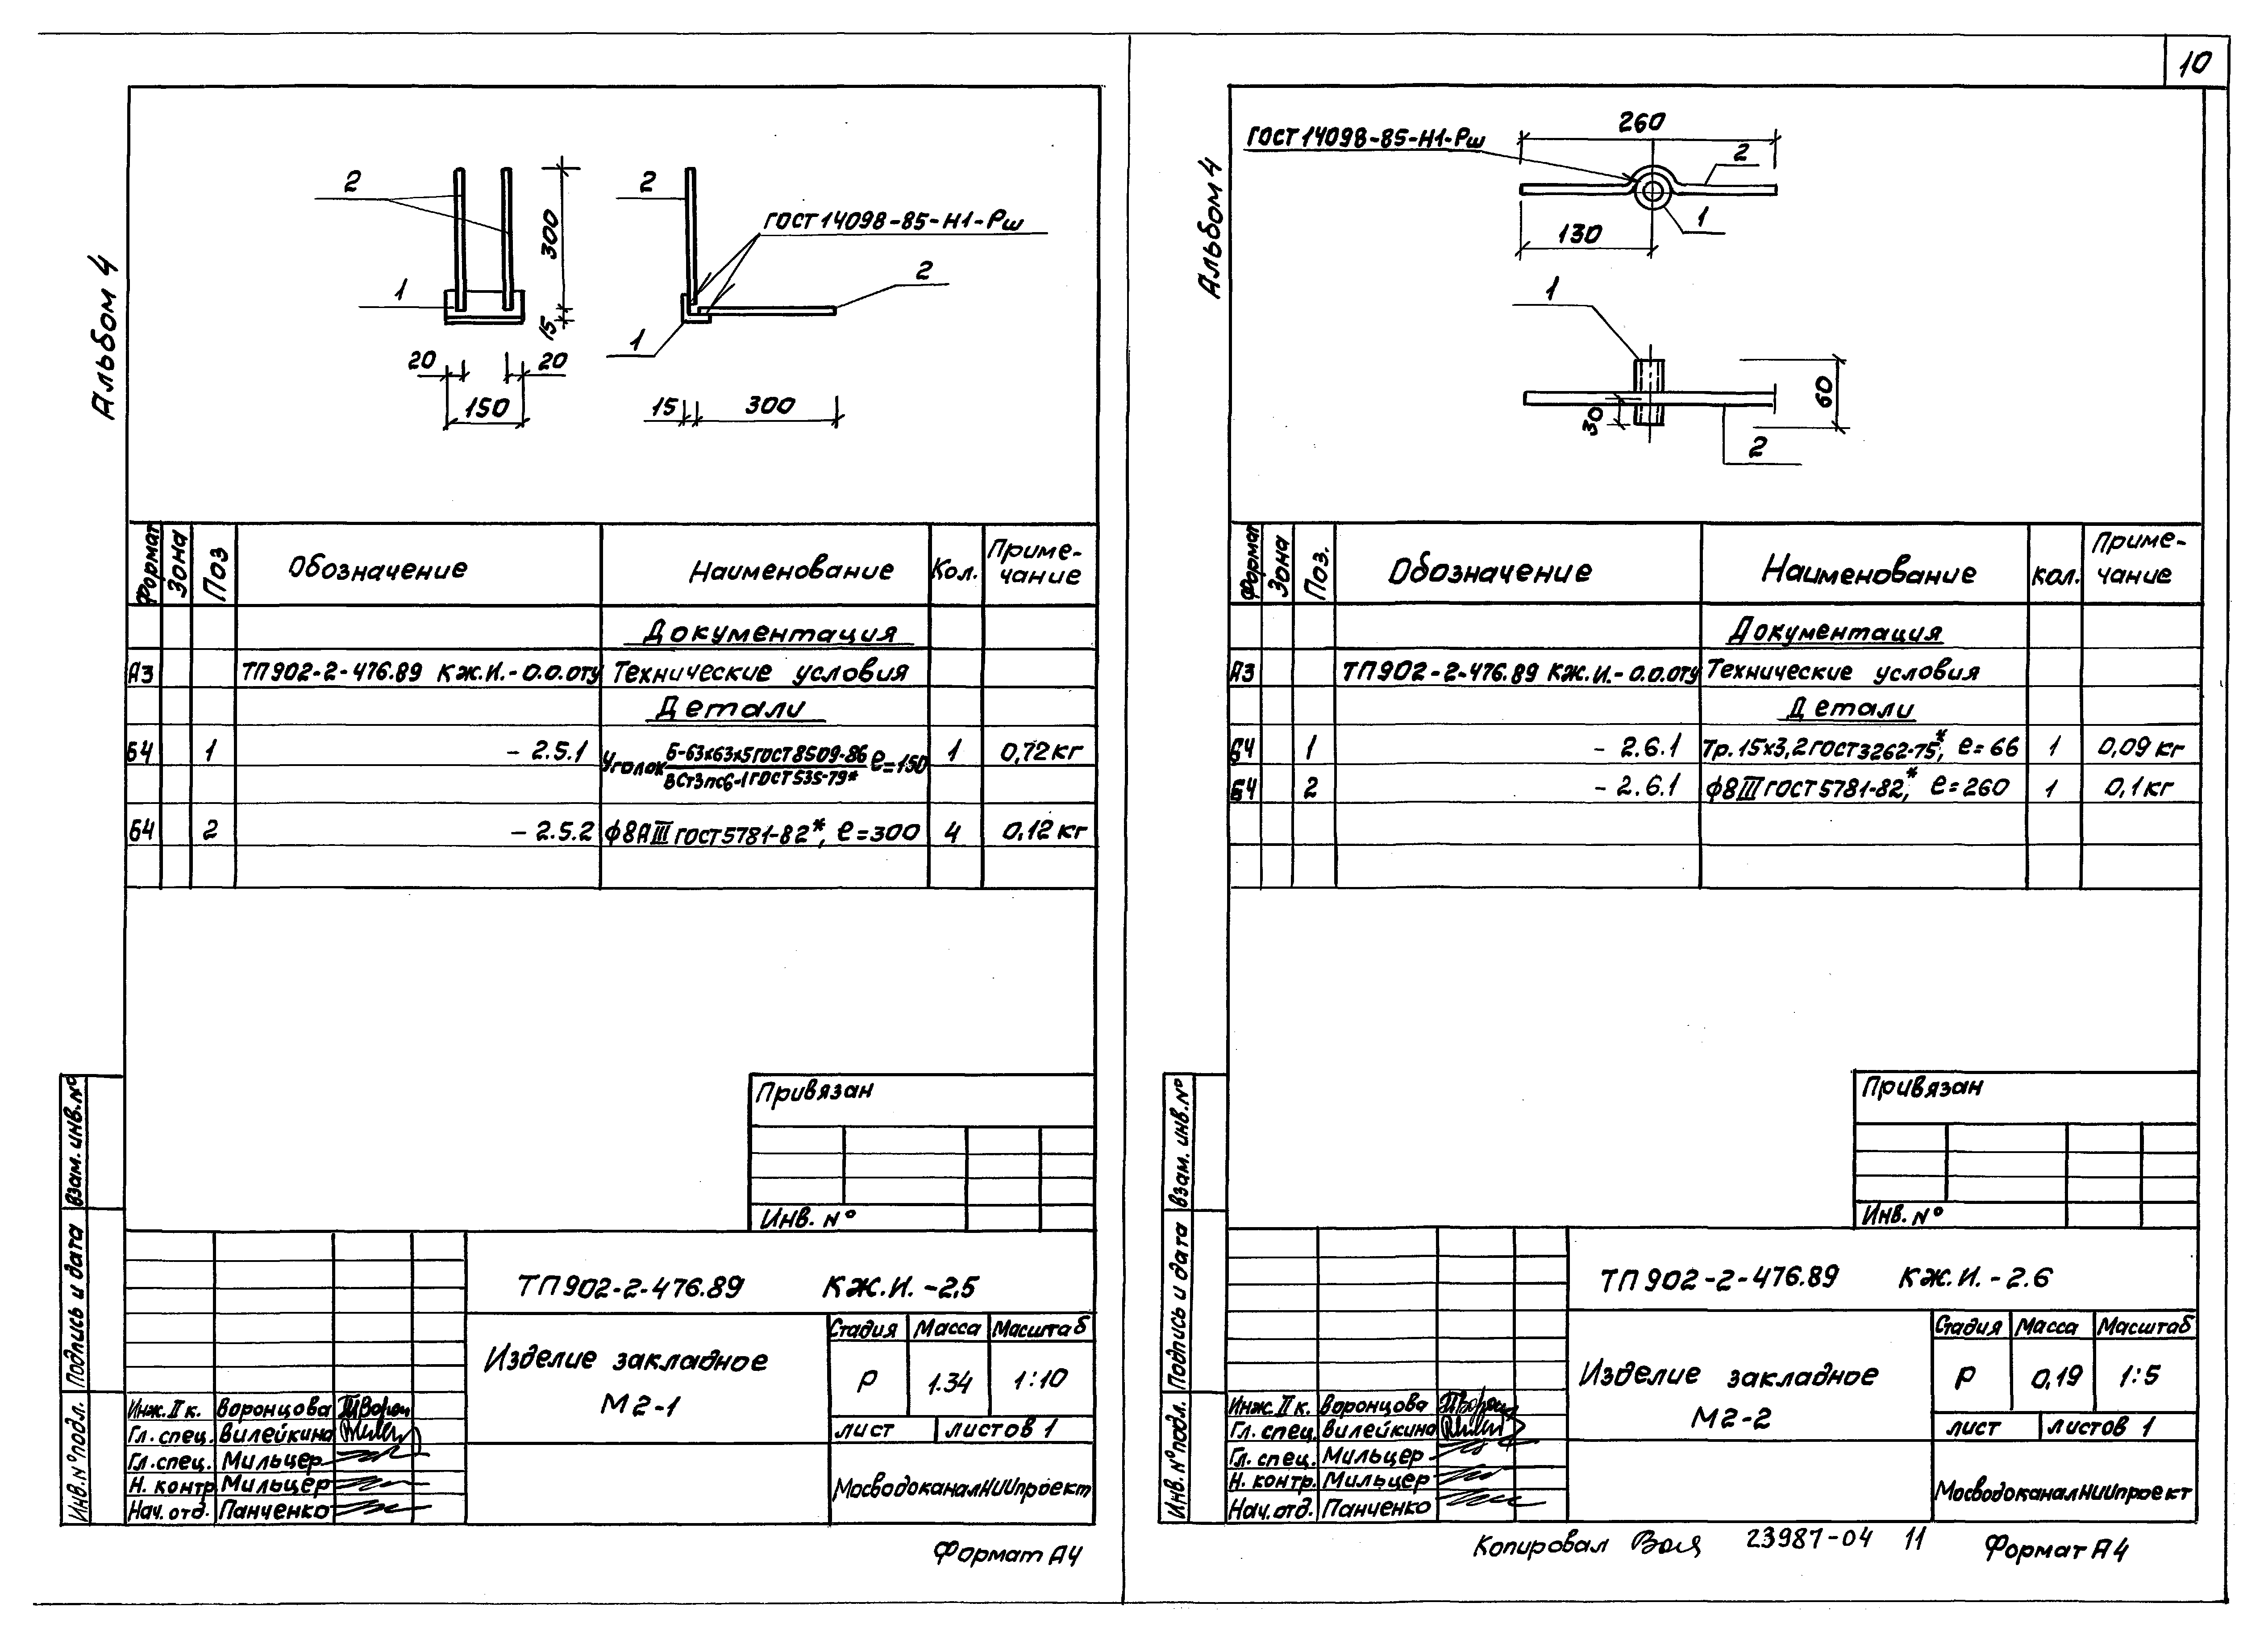 10
Альбом 4
2
300
1
15
20
20
150
2
ГОСТ 14098-85-Н1-Рш
2
1
15
300
Формат
Зона
Поз
Обозначение
Наименование
Кол.
Приме-
чание
Документация
А3 ТП902-2-476.89 КЖ.И.-0.0.0ТУ Технические условия
Детали
Б4 1 -2.5.1 Уголок Б-63х63х5 ГОСТ 8509-86 ℓ=150 1 0,72кг
ВСт3пс6-1 ГОСТ 535-79*
Б4 2 -2.5.2 ф8АIII ГОСТ 5781-82*, ℓ=300 4 0,12кг
Привязан
Инв. №
ТП902-2-476.89 КЖ.И.-2.5
Изделие закладное
М2-1
Стадия Масса Масштаб
Р 1.34 1:10
лист листов 1
Мосводоканалниипроект
Инж. II к. Воронцова
Гл. спец. Вилейкина
Гл. спец. Мильцер
Н. контр Мильцер
Нач. отд. Панченко
Взам. инв. №
Подпись и дата
Инв. № подл.
Формат А4
10
Альбом 4
ГОСТ 14098-85-Н1-Рш
260
2
1
130
1
60
30
2
Формат
Зона
Поз.
Обозначение
Наименование
Кол.
Приме-
чание
Документация
А3 ТП902-2-476.89 КЖ.И.-0.0.0ТУ Технические условия
Детали
Б4 1 -2.6.1 Тр. 15х3,2 ГОСТ 3262-75*, ℓ=66 1 0,09кг
Б4 2 -2.6.1 ф8III ГОСТ 5781-82*, ℓ=260 1 0,1кг
Привязан
Инв. №
ТП902-2-476.89 КЖ.И.-2.6
Изделие закладное
М2-2
Стадия Масса Масштаб
Р 0,19 1:5
лист листов 1
Мосводоканалниипроект
Инж. II к. Воронцова
Гл. спец. Вилейкина
Гл. спец. Мильцер
Н. контр. Мильцер
Нач. отд. Панченко
Взам. инв. №
Подпись и дата
Инв. № подл.
Копировал 23987-04 11 Формат А4